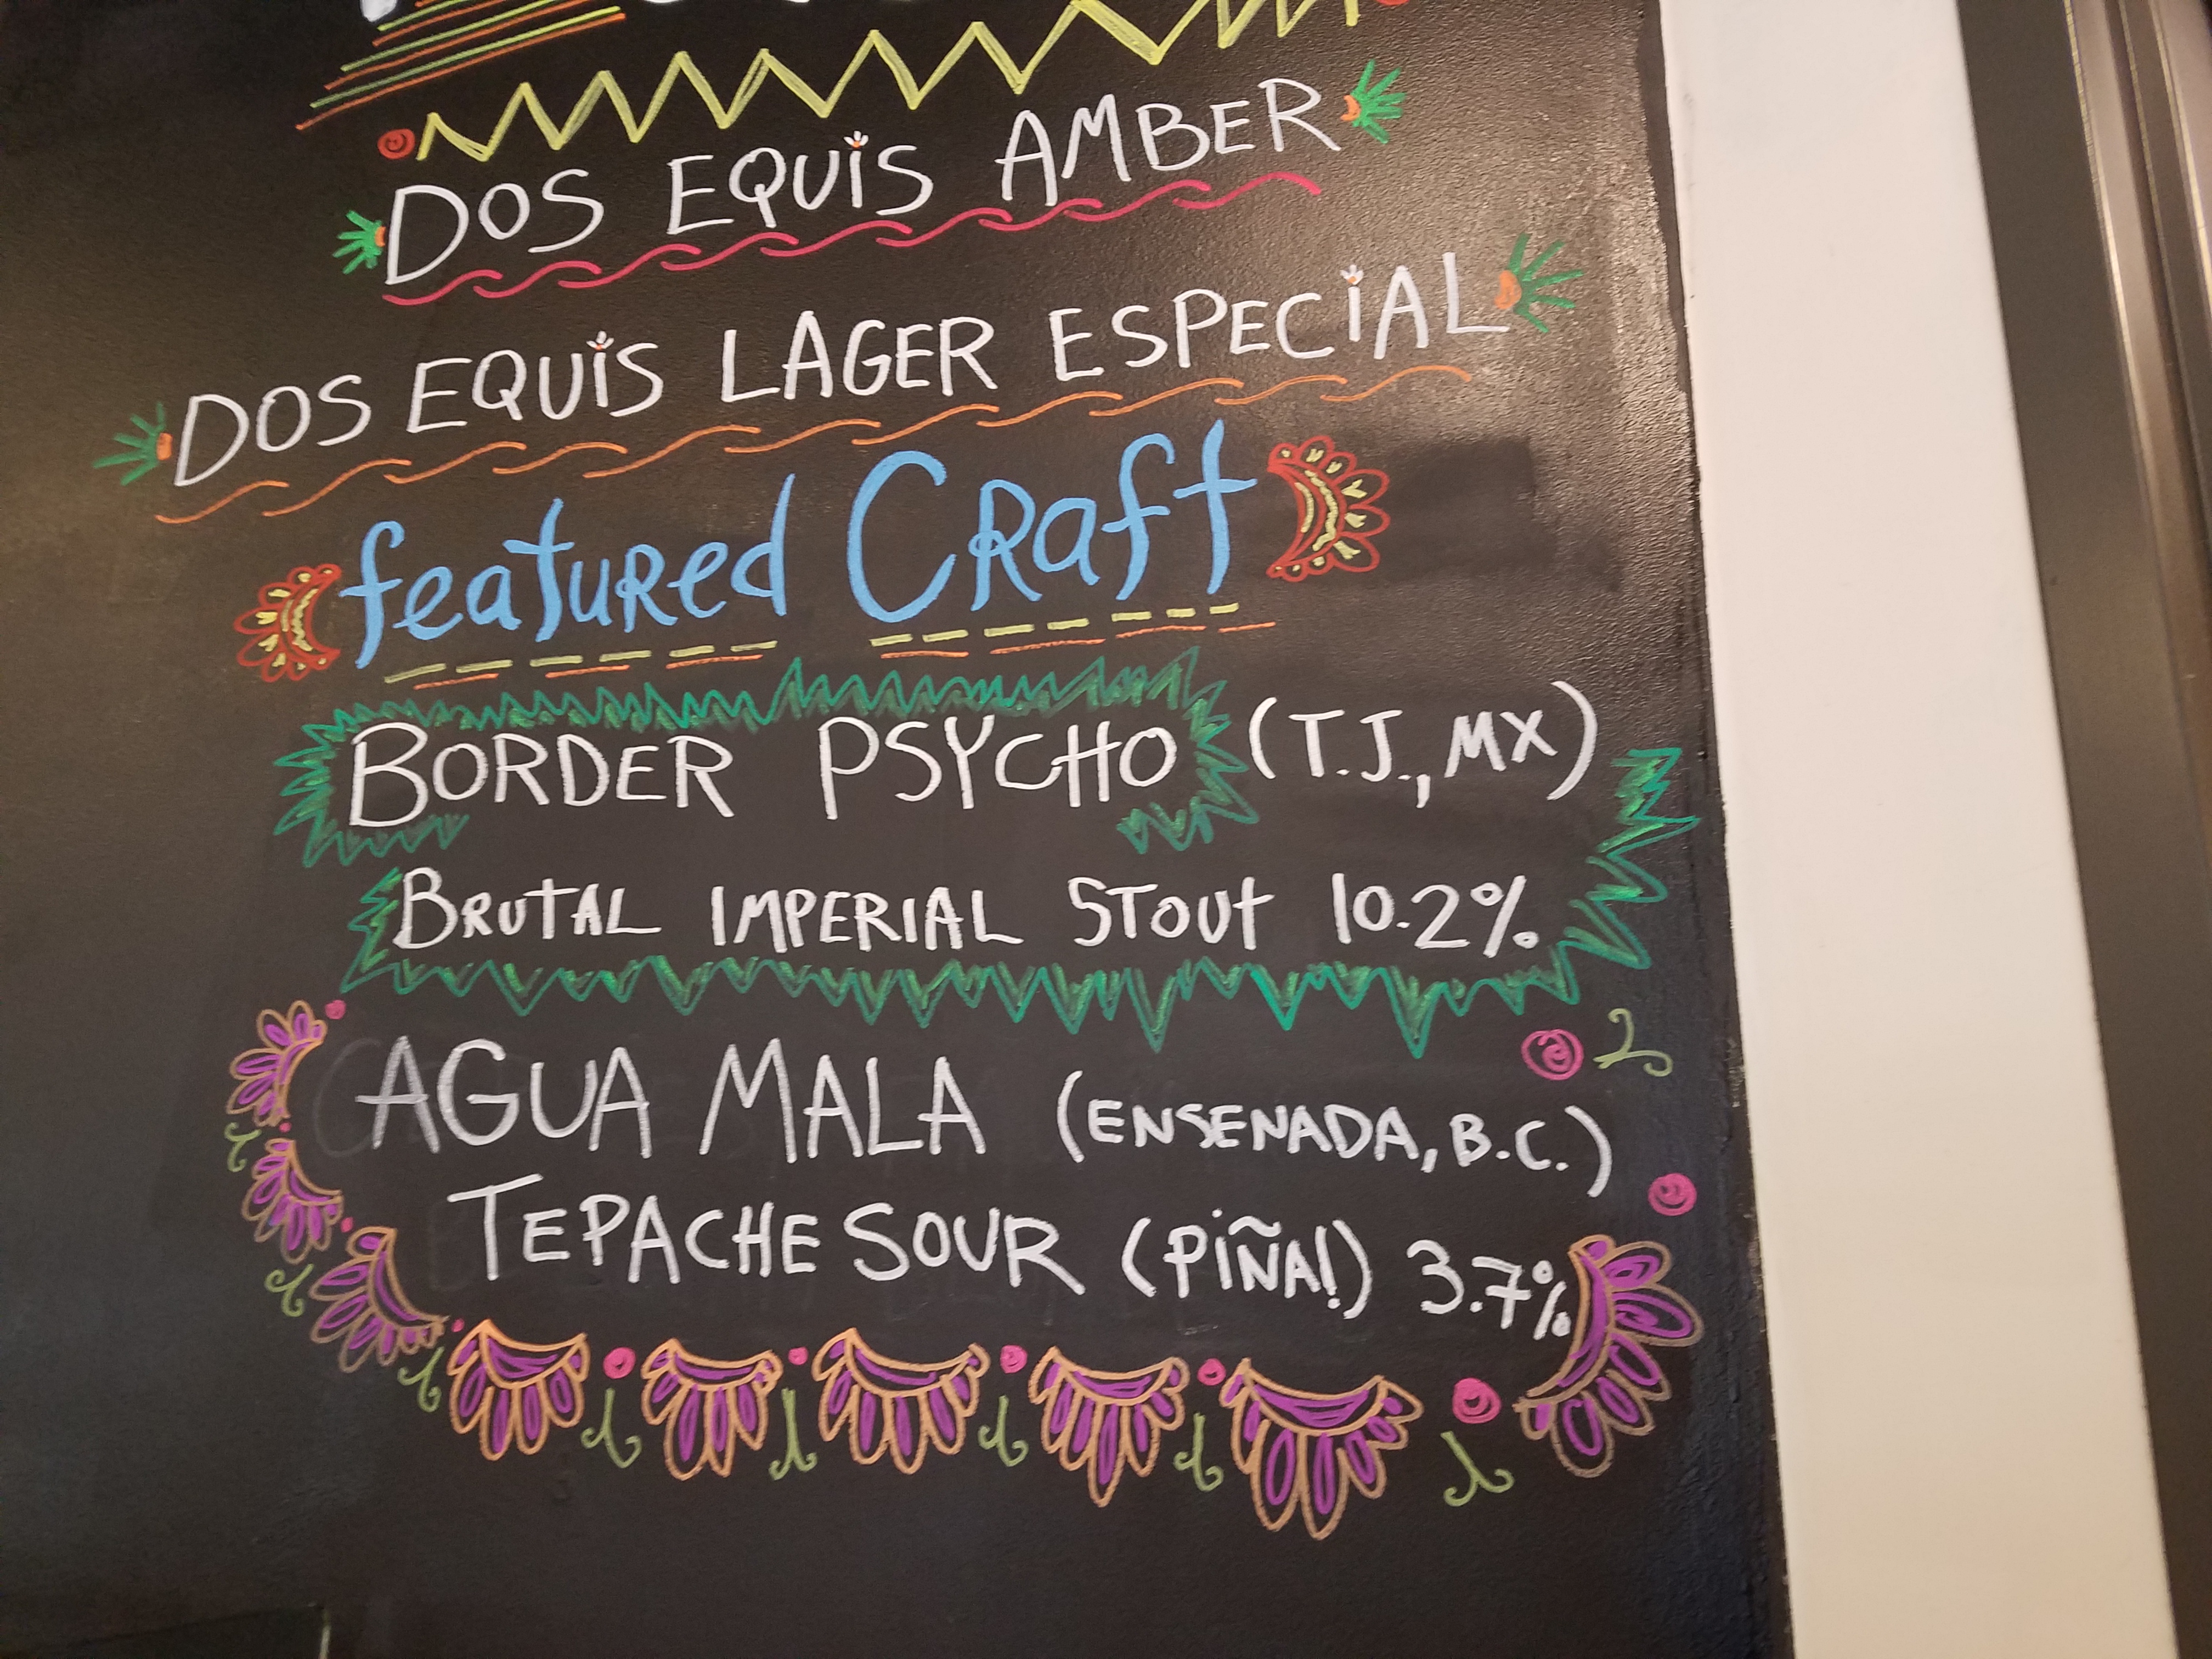 DOS EQUIS AMBER
DOS EQUIS LAGER ESPECIAL
featured Craft
BORDER PSYCHO (T.J., MX)
BRUTAL IMPERIAL STOUT 10.2%
AGUA MALA (ENSENADA, B.C.)
TEPACHE SOUR (PIÑA!) 3.7%